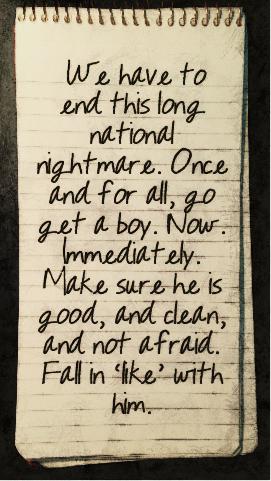 We have to
end this long
national
nightmare. Once
and for all, go
get a boy. Now.
Immediately.
Make sure he is
good, and clean,
and not afraid.
Fall in 'like' with
him.